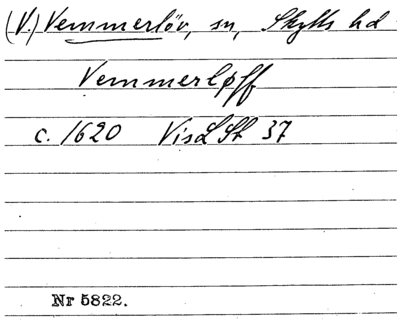 (V.) Vemmerlöv, sn, Skytts hd
Vemmerløff
c. 1620 VisLSt 37
Nr 5822.